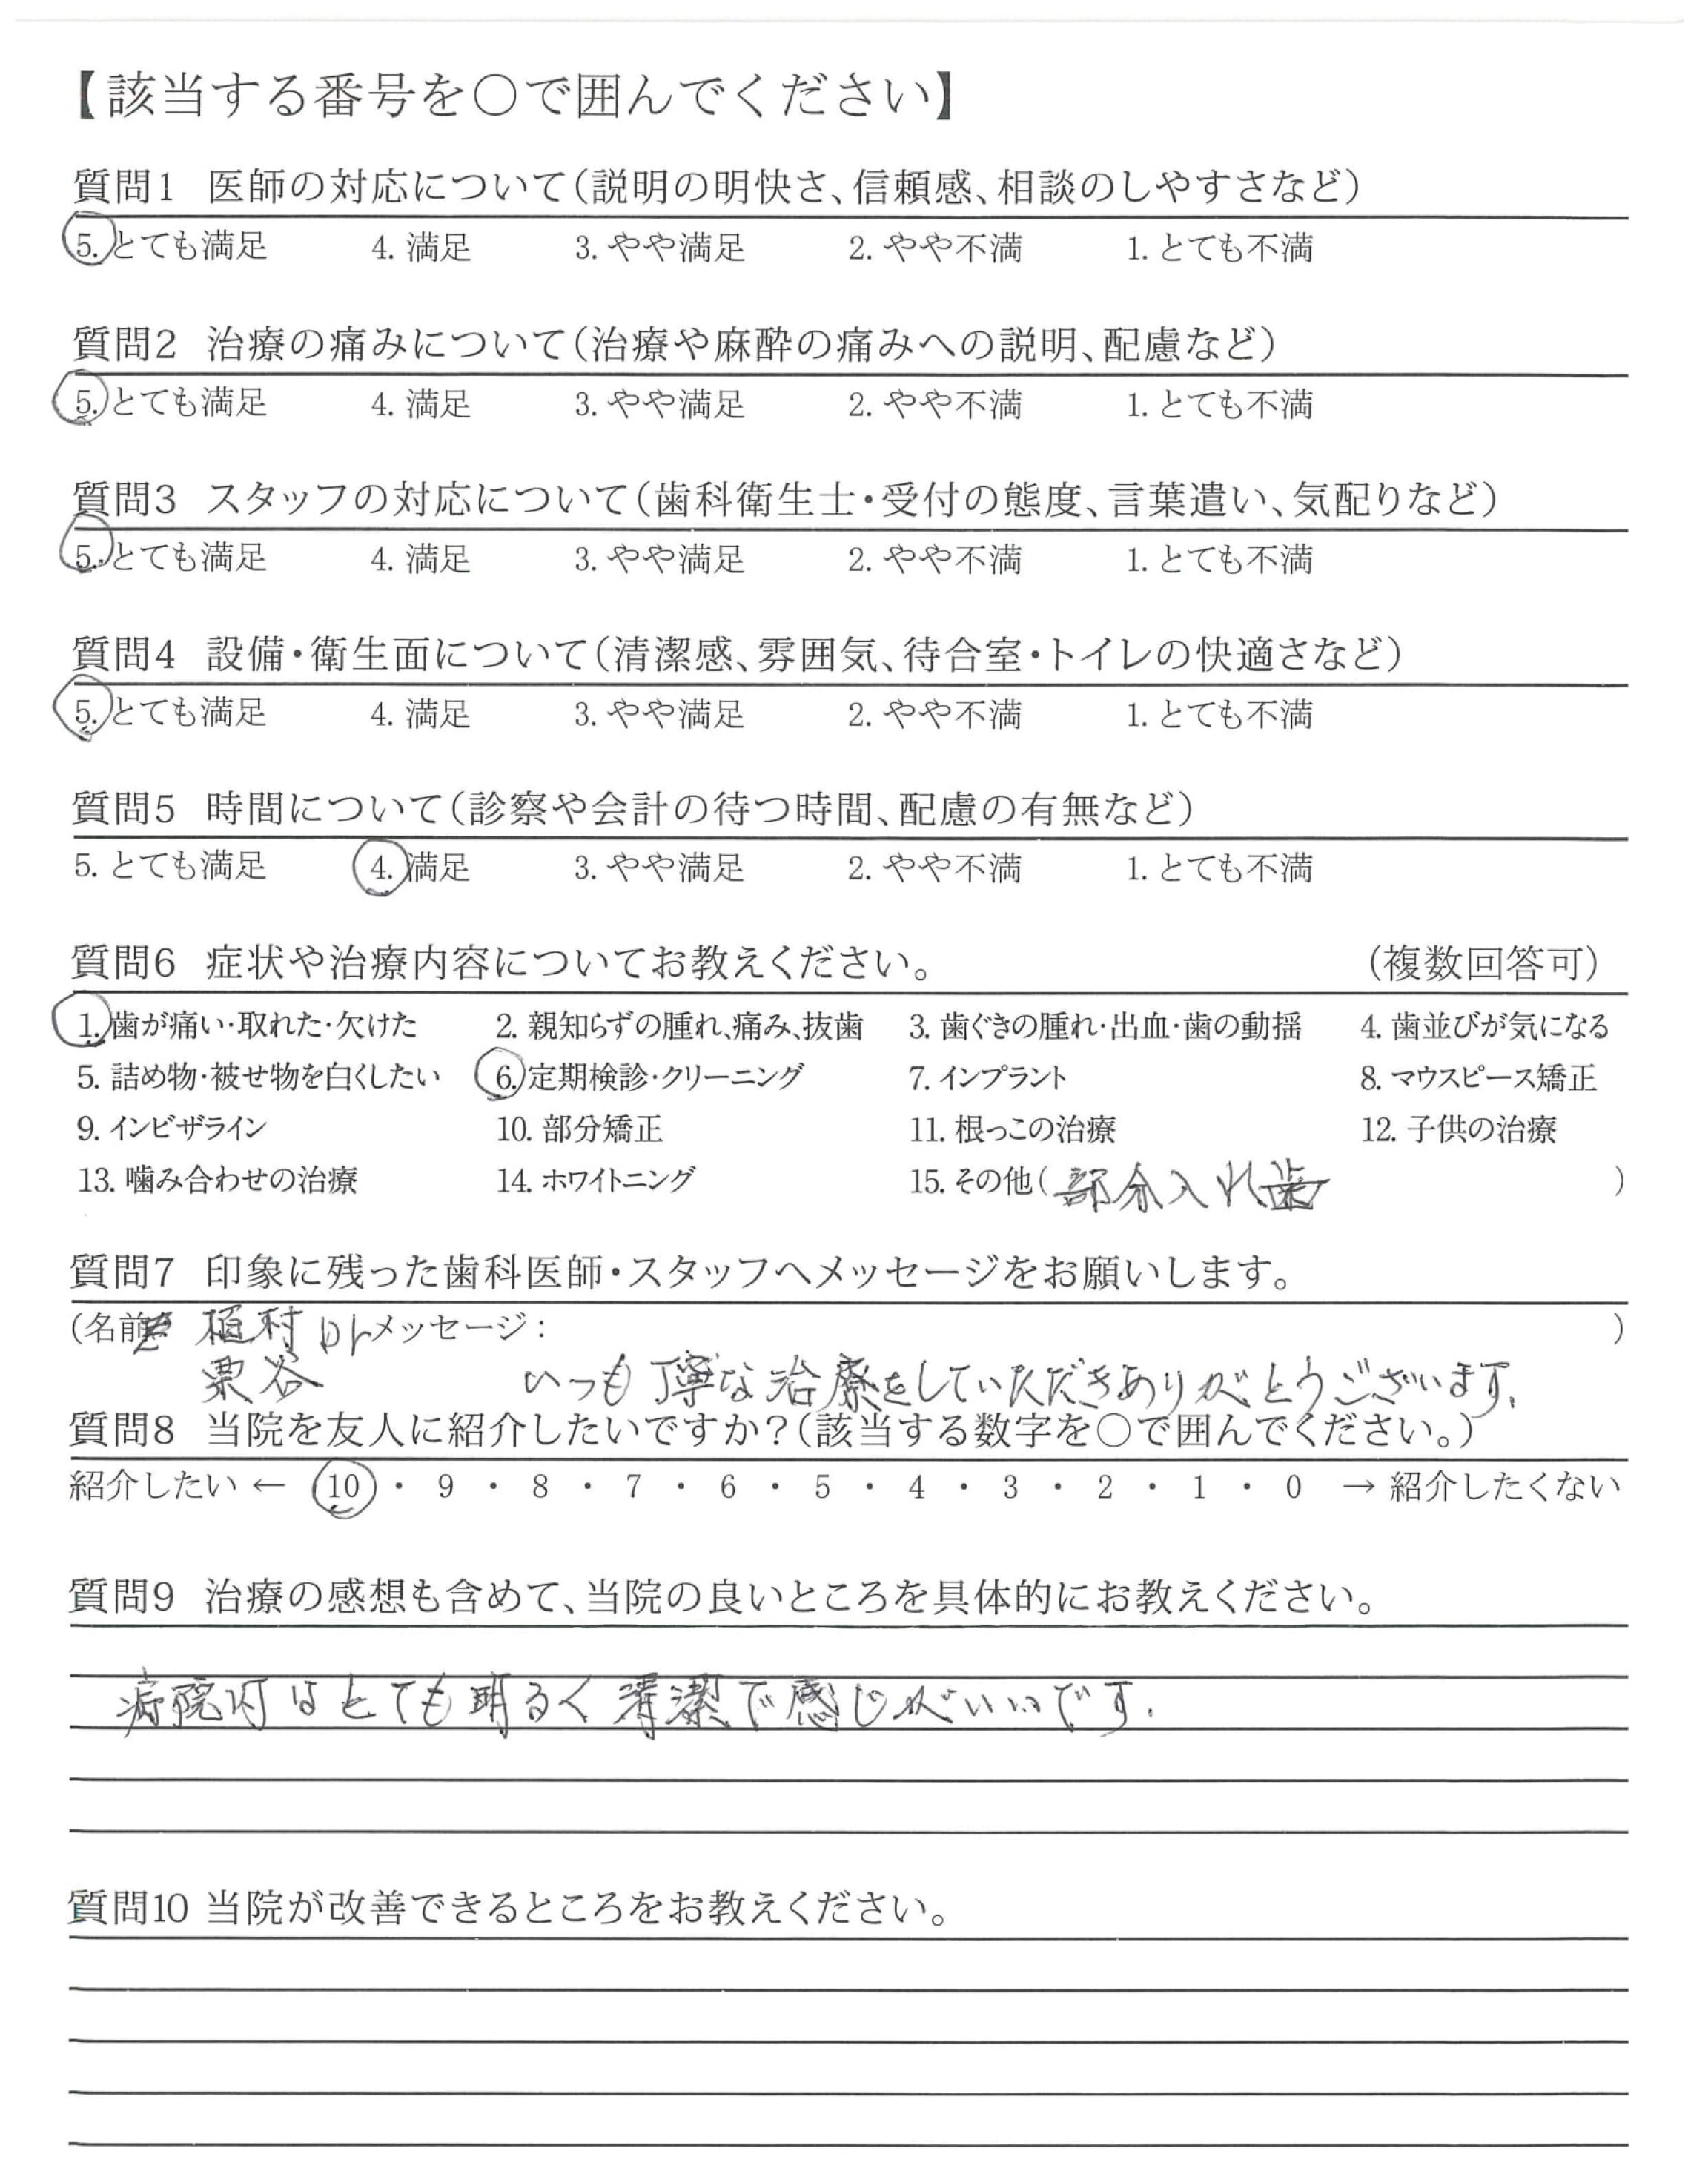 【該当する番号を○で囲んでください】
質問1 医師の対応について(説明の明快さ、信頼感、相談のしやすさなど)
5. とても満足 4. 満足 3. やや満足 2. やや不満 1. とても不満
質問2 治療の痛みについて(治療や麻酔の痛みへの説明、配慮など)
5. とても満足 4. 満足 3. やや満足 2. やや不満 1. とても不満
質問3 スタッフの対応について(歯科衛生士・受付の態度、言葉遣い、気配りなど)
5. とても満足 4. 満足 3. やや満足 2. やや不満 1. とても不満
質問4 設備・衛生面について(清潔感、雰囲気、待合室・トイレの快適さなど)
5. とても満足 4. 満足 3. やや満足 2. やや不満 1. とても不満
質問5 時間について(診察や会計の待つ時間、配慮の有無など)
5. とても満足 4. 満足 3. やや満足 2. やや不満 1. とても不満
質問6 症状や治療内容についてお教えください。 (複数回答可)
1. 歯が痛い・取れた・欠けた 2. 親知らずの腫れ、痛み、抜歯 3. 歯ぐきの腫れ・出血・歯の動揺 4. 歯並びが気になる
5. 詰め物・被せ物を白くしたい 6. 定期検診・クリーニング 7. インプラント 8. マウスピース矯正
9. インビザライン 10. 部分矯正 11. 根っこの治療 12. 子供の治療
13. 噛み合わせの治療 14. ホワイトニング 15. その他(部分入れ歯 )
質問7 印象に残った歯科医師・スタッフへメッセージをお願いします。
(名前 植村Dr メッセージ: )
栗谷 いつも丁寧な治療をしていただきありがとうございます.
質問8 当院を友人に紹介したいですか?(該当する数字を○で囲んでください。)
紹介したい ← 10 ・ 9 ・ 8 ・ 7 ・ 6 ・ 5 ・ 4 ・ 3 ・ 2 ・ 1 ・ 0 → 紹介したくない
質問9 治療の感想も含めて、当院の良いところを具体的にお教えください。
病院内はとても明るく清潔で感じがいいです.
質問10 当院が改善できるところをお教えください。